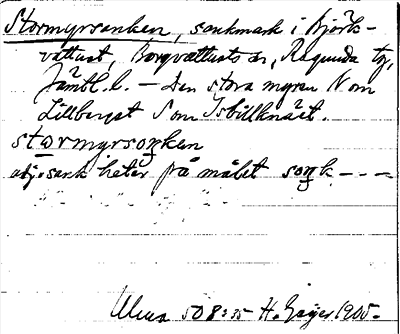 Stormyrsonken, sankmark i Björk-
vattnet, Borgvattnets sn, Ragunda tg,
Jämtl. l. — Den stora myren N om
Lillberget S om Isbillknäst.
stormyrsoŋken
adj. sank heter på målet soŋk - - -
Ulma 508:35 H. Geijer 1905.